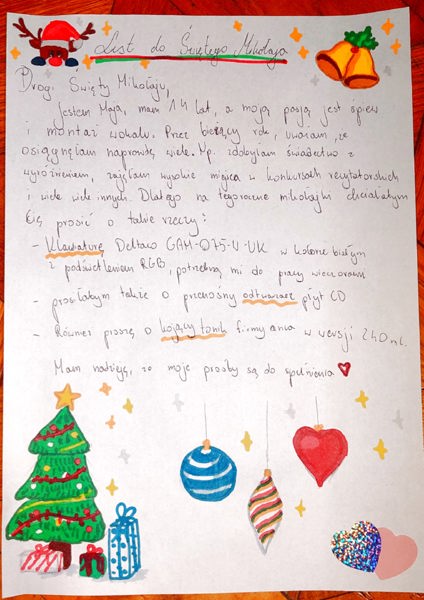 List do Świętego Mikołaja
Drogi Święty Mikołaju,
Jestem Maja, mam 14 lat, a moją pasją jest śpiew
i montaż wokalu. Przez bieżący rok, uważam, że
osiągnęłam naprawdę wiele. Np. zdobyłam świadectwo z
wyróżnieniem, zajęłam wysokie miejsca w konkursach recytatorskich
i wiele wiele innych. Dlatego na tegoroczne mikołajki chciałabym
Cię prosić o takie rzeczy:
- Klawiaturę Deltaco GAM-075-W-UK w kolorze białym
z podświetleniem RGB, potrzebną mi do pracy wieczorami
- prosiłabym także o przenośny odtwarzacz płyt CD
- Również proszę o kojący tonik firmy ania w wersji 240ml.
Mam nadzieję, że moje prośby są do spełnienia